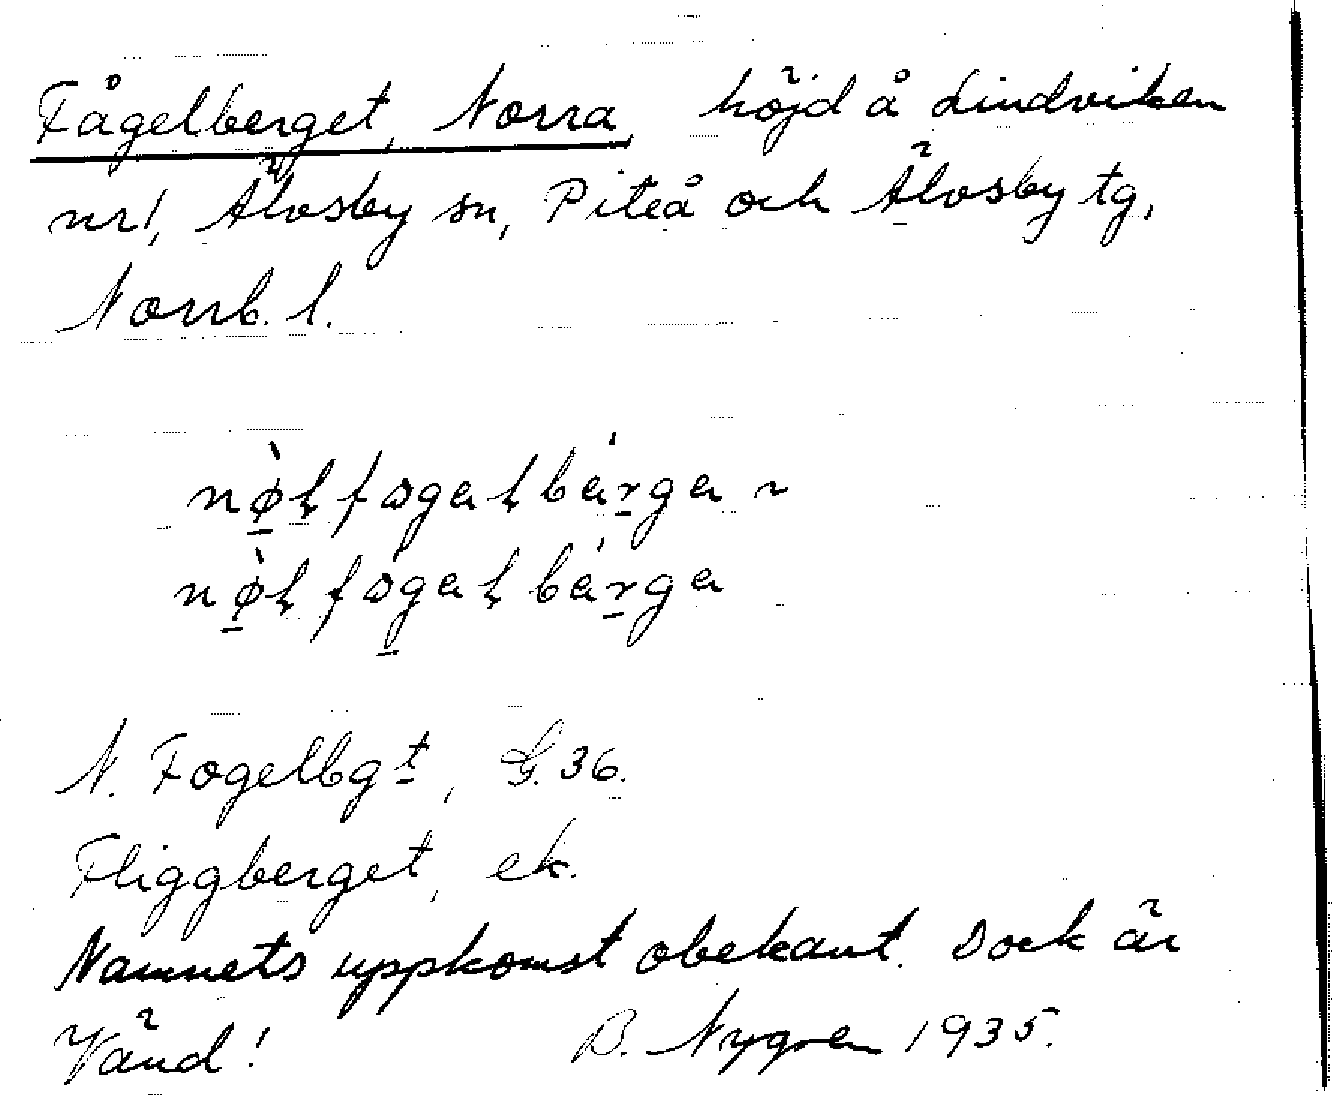 Fågelberget, Norra, höjd å Lindviken
nr 1, Älvsby sn, Piteå och Älvsby tg,
Norrb. l.
nø̠̀ɫfogaɫbár̠ga ~
nø̠̀ɫfo̠gaɫbár̠ga
N. Fogelbgt, G. 36.
Fliggberget, ek.
Namnets uppkomst obekant. Dock är
Vänd! B. Nygren 1935.